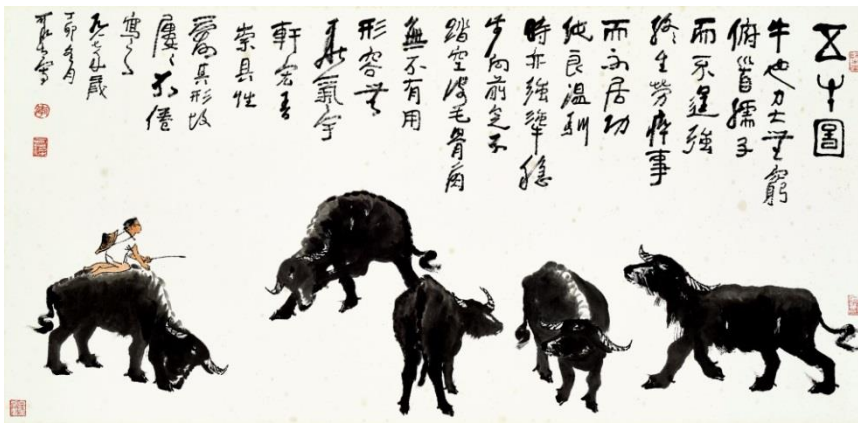 五牛圖
牛也力大無窮
俯首孺子
而不逞強
終生勞瘁事
而不居功
純良溫馴
時亦強犟穩
步向前足不
踏空皮毛骨角
無不有用
形容無
華氣宇
軒宏吾
崇其性
愛其形故
屢屢不倦
寫之
歲
丁卯
可染寫